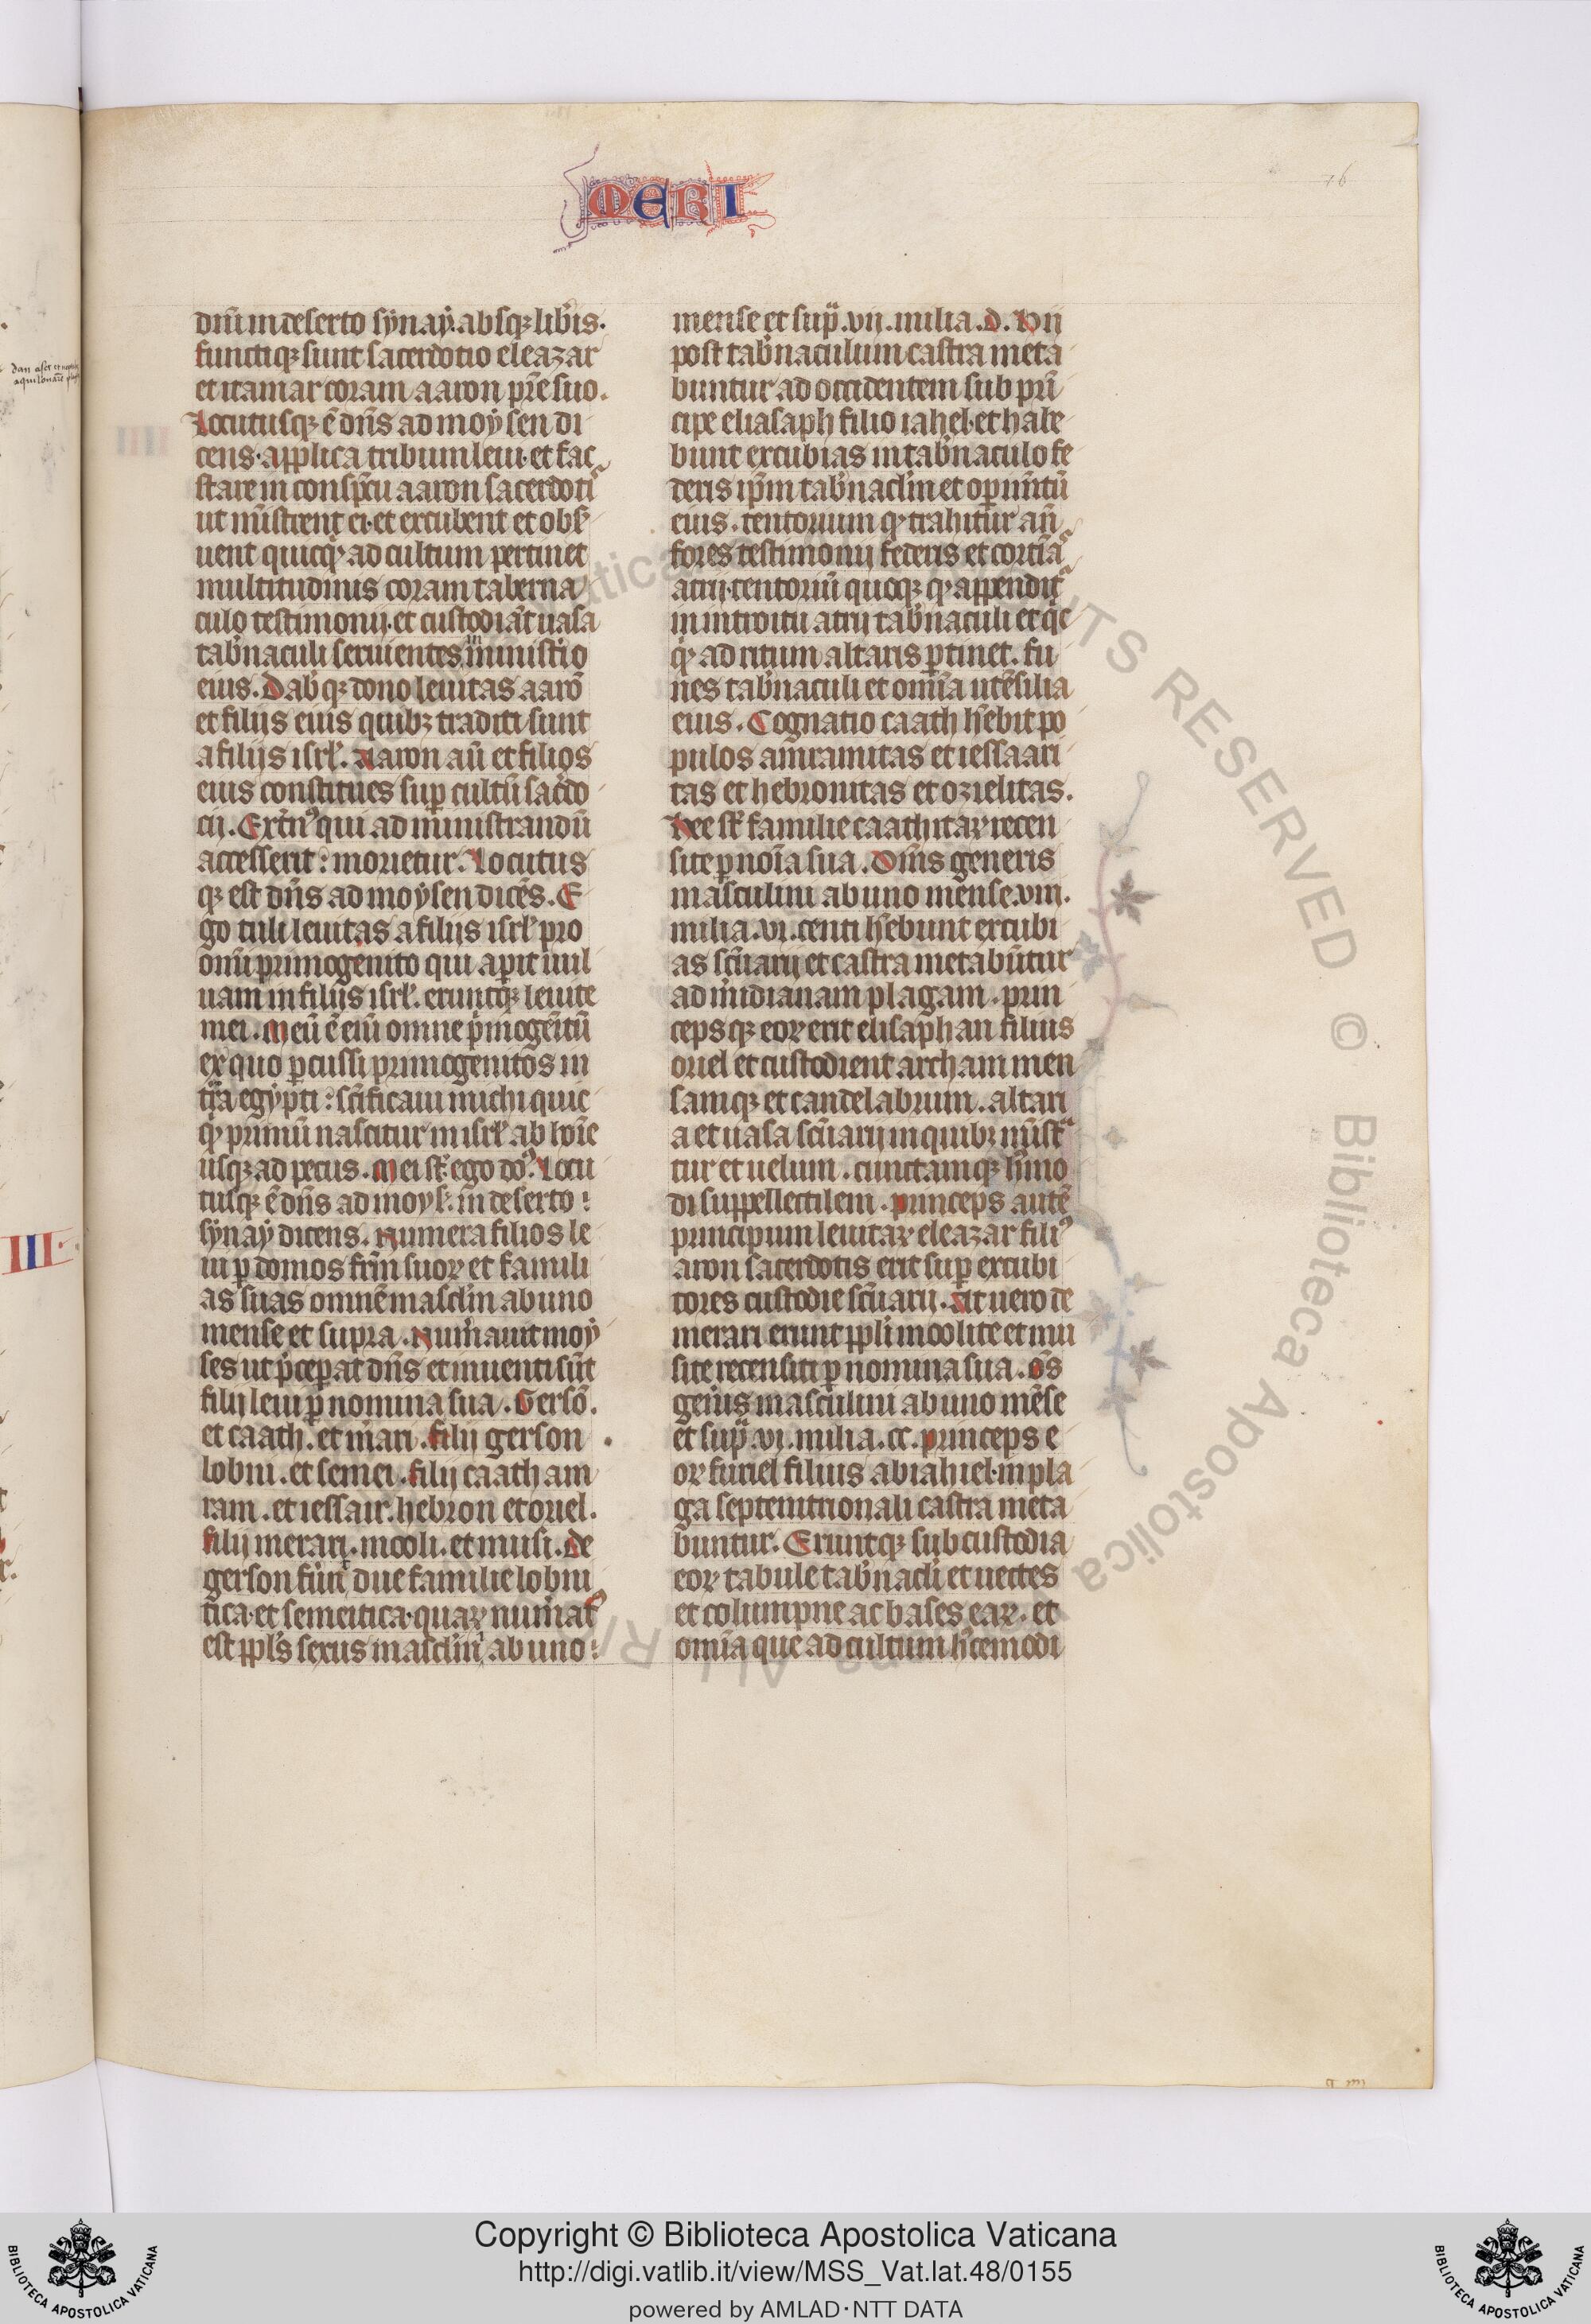 MERI
76
dn̄m in deserto sÿnaÿ. absqꝫ lib̓is.
functiqꝫ sunt sacerdotio eleazar
et itamar coram aaron pr̄e suo.
Locutusqꝫ ē dn̄s ad moÿsen di
cens. applica tribum leui. et fac
stare in consp̄cu aaron sacerdotꝭ
ut mīstrent ei. et excubent et obs̓
uent quicqͥd ad cultum pertinet
multitudinis coram taberna
culo testimonij. et custodiāt uasa
tab̓naculi seruientes in minist̓io
eius. Dabꝭqꝫ dono leuitas aarō
et filijs eius quibꝫ traditi sunt
a filijs isrł. Aaron aū et filios
eius constitues suꝑ cultū sac̓do
cij. Ext̓nꝰ qui ad ministrandū
accesserit: morietur. Locutus
qꝫ est dn̄s ad moÿsen dicēs. E
go tuli leuitas a filijs isrł pro
om̄i primogenito qui aperit uul
uam in filijs isrł. eruntqꝫ leuite
mei. Meū ē eīm omne pͥmogēitū
ex quo ꝑcussi primogenitos in
tr̄a egÿpti: sc̄ificaui michi quic
qͥd primū nascitur in isrł ab hoīe
usqꝫ ad pecus. Mei st̄ ego dn̄s. Locu
tusqꝫ ē dn̄s ad moÿs̄ in deserto:
sÿnaÿ dicens. Numera filios le
ui ꝑ domos fr̄m suoꝝ et famili
as suas omnē mascl̄in ab uno
mense et supra. Num̓auit moÿ
ses ut p̄ceꝑat dn̄s et inuenti sūt
filij leui ꝑ nomina sua. Gersō.
et caath. et m̓ari. filij gerson.
lobni. et semei. filij caath am
ram. et iessair. hebron et oziel.
filij merari. mooli. et musi. De
gerson fūr̄t due familie lobni
tica. et semeitica. quaꝝ num̓atꝰ
est ppl̄s sexus mascl̄inͥ ab uno:
mense et supͣ. vij. milia. d. Hii
post tab̓naculum castra meta
buntur ad occidentem sub prī
cipe eliasaph filio iahel. et habe
bunt excubias in tab̓naculo fe
deris ip̄m tab̓nacl̄m et oꝑimn̄tū
eius. tentorium qd̓ trahitur an̄
fores testimonij federis et cortiāꝭ
atrij. tentoriū quoqꝫ qd̓ appenditͬ
in introitu atrij tab̓naculi et qͥc
qͥd ad ritum altaris ꝑtinet. fu
nes tab̓naculi et omīa utēsilia
eius. Cognatio caath hēbit po
pulos amramitas et iessaari
tas et hebronitas et ozielitas.
Hee st̄ familie caathitaꝝ recen
site ꝑ noīa sua. Om̄s generis
masculini ab uno mense. viii.
milia. vi. centi hēbunt excubi
as sc̄uarij et castra metabūtur
ad m̓idianam plagam. prin
cepsqꝫ eoꝝ erit elisaphan filius
oziel et custodient archam men
samqꝫ et candelabrum. altari
a et uasa sc̄uarij in quibꝫ mīstͣ
tur et uelum. cunctamqꝫ hͥmo
di suppellectilem. Princeps autē
principum leuitaꝝ eleazar filiꝰ
aron sacerdotis erit suꝑ excubi
tores custodie sc̄uarij. At uero de
merari erunt ppl̄i moolite et mu
site recensiti ꝑ nomina sua. Om̄s
gen̓is masculini ab uno mēse
et supͣ. vi. milia. cc. princeps e
oꝝ suriel filius abiahiel. in pla
ga septentrionali castra meta
buntur. Eruntqꝫ sub custodia
eoꝝ tabule tab̓nacl̄i et uectes
et columpne ac bases eaꝝ. et
omīa que ad cultum hͥcemodi
III
Copyright © Biblioteca Apostolica Vaticana
http://digi.vatlib.it/view/MSS_Vat.lat.48/0155
powered by AMLAD·NTT DATA
BIBLIOTECA APOSTOLICA VATICANA
BIBLIOTECA APOSTOLICA VATICANA